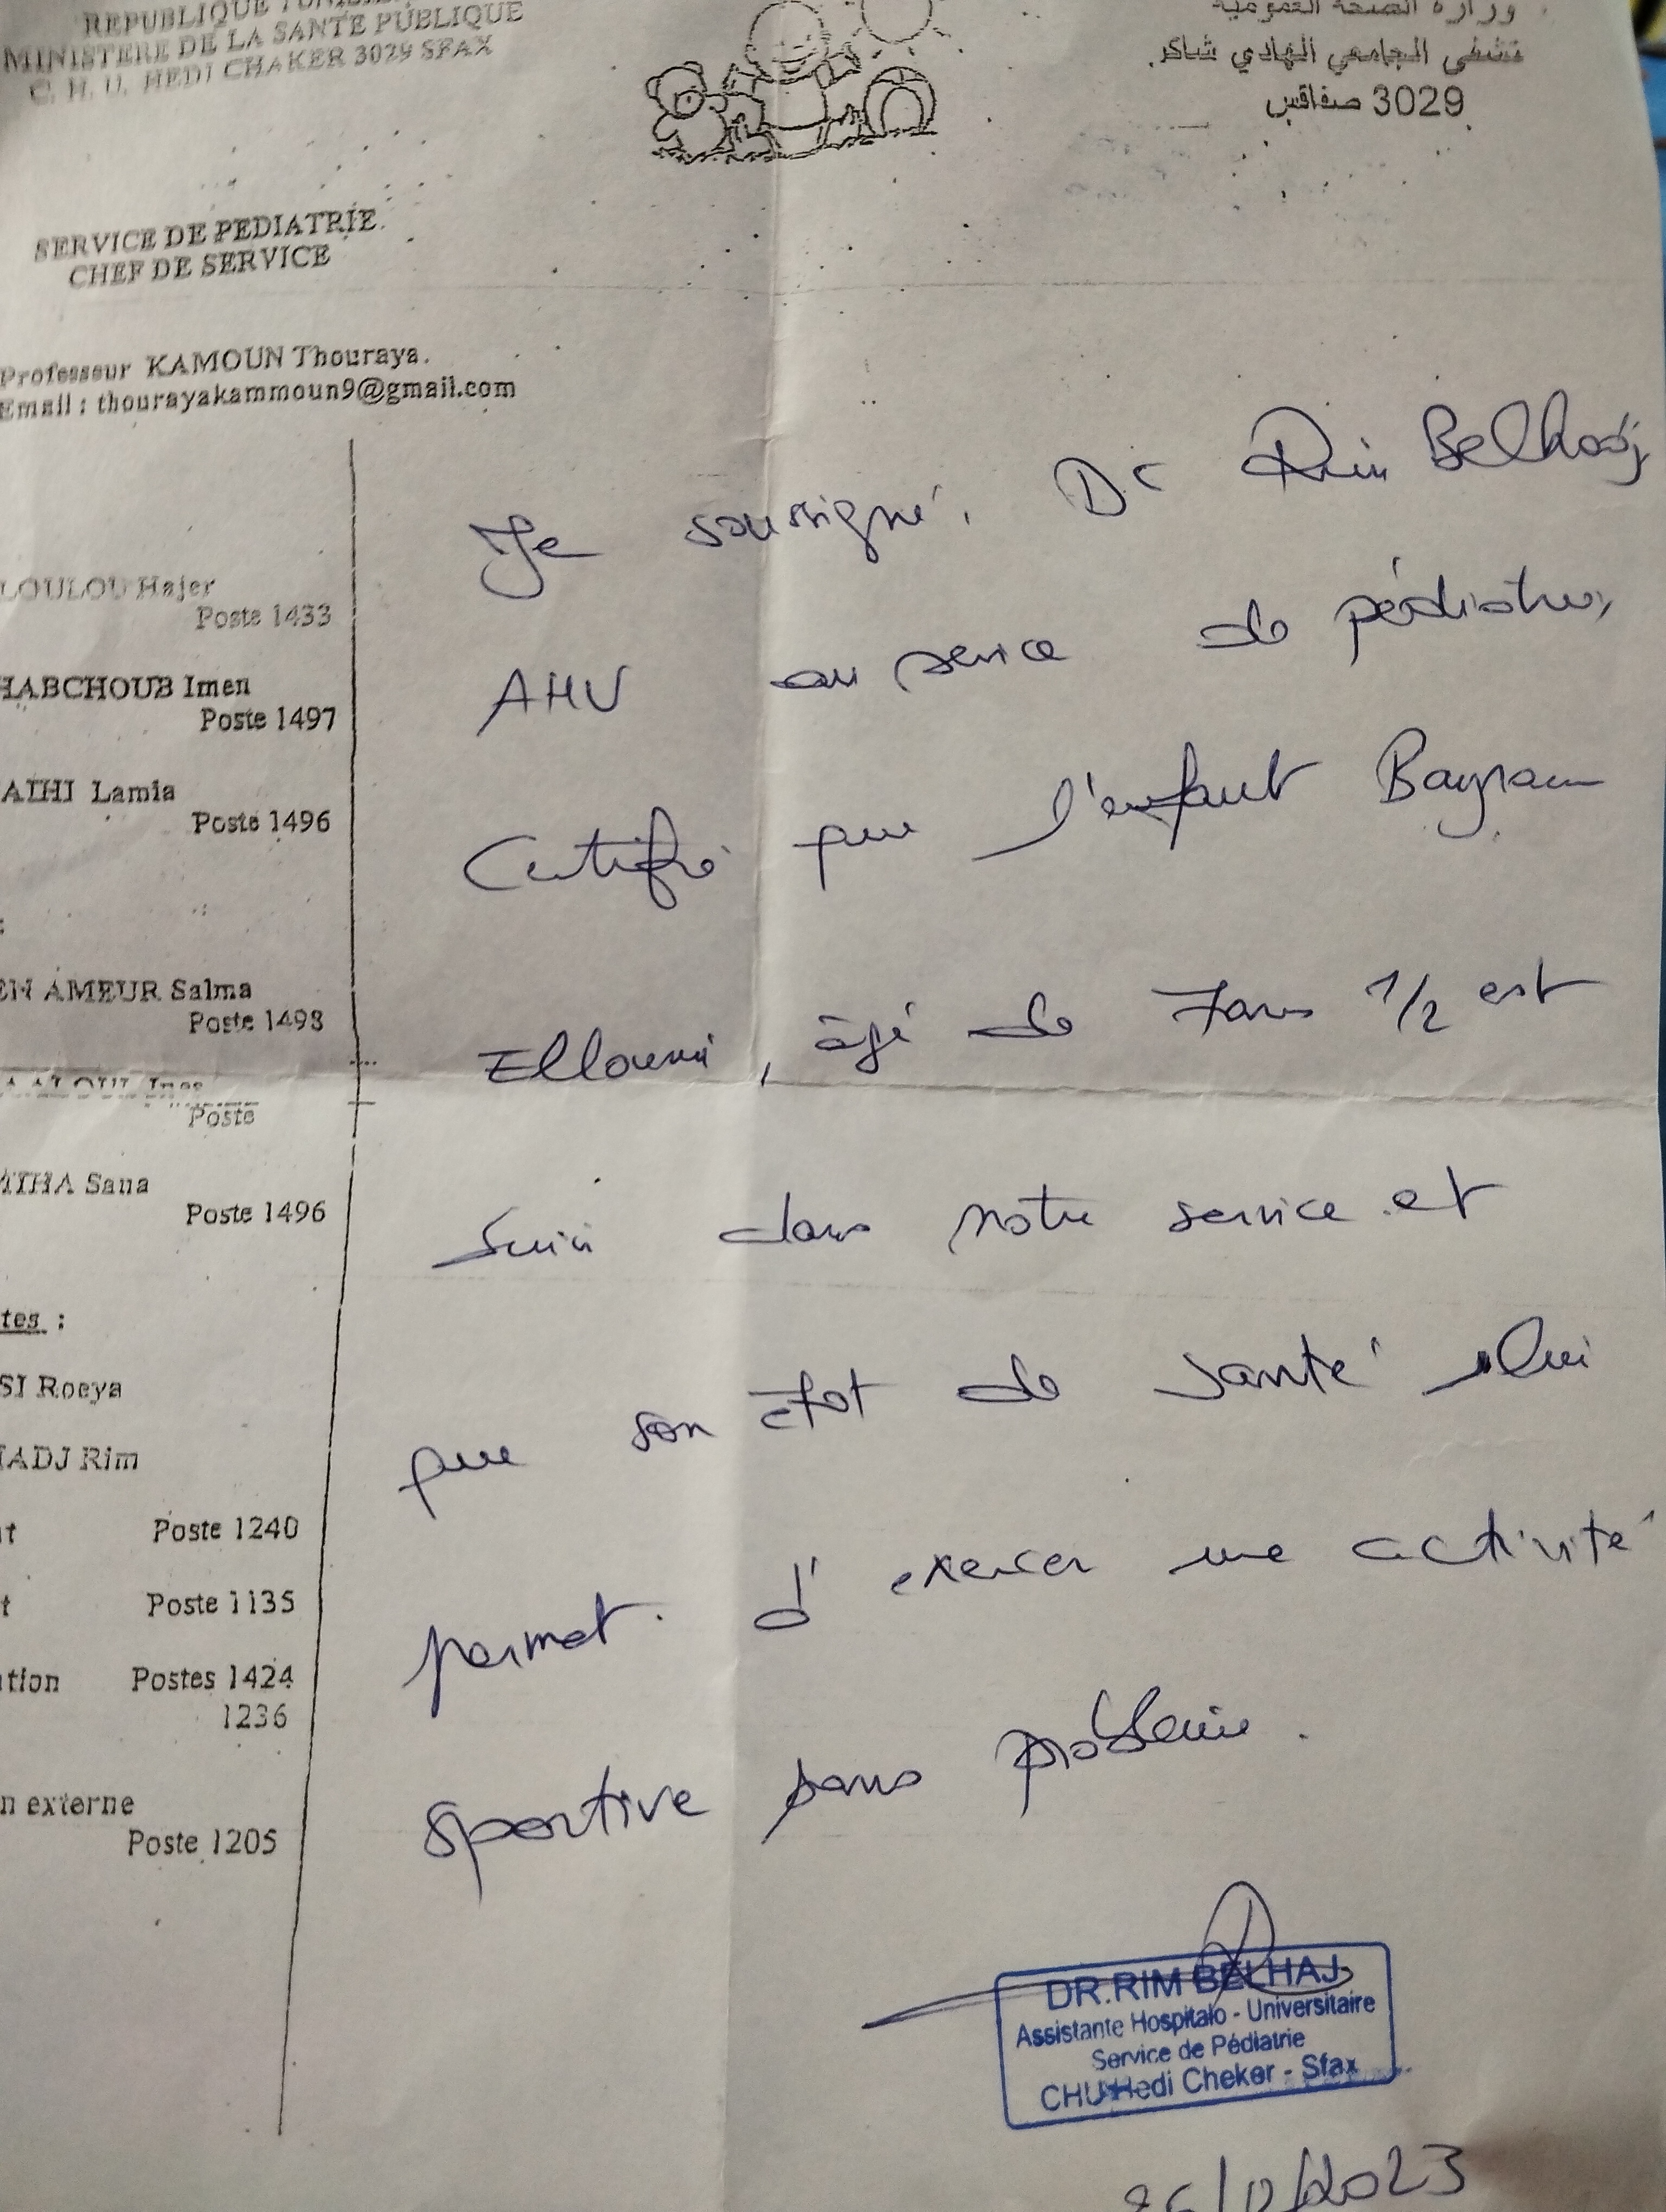 REPUBLIQUE
MINISTERE DE LA SANTE PUBLIQUE
C. H. U. HEDI CHAKER 3029 SFAX
وزارة الصحة العمومية
الجامعي الهادي شاكر
3029 صفاقس
SERVICE DE PEDIATRIE.
CHEF DE SERVICE
Professeur KAMOUN Thouraya.
Email : thourayakammoun9@gmail.com
LOULOU Hajer
Poste 1433
HABCHOUB Imen
Poste 1497
ATHI Lamia
Poste 1496
:
EN AMEUR Salma
Poste 1498
Poste
Sana
Poste 1496
tes :
SI Roeya
HADJ Rim
t Poste 1240
t Poste 1135
tion Postes 1424
1236
n externe
Poste 1205
Je soussigné, Dr Rim Belhadj
AHU au service de pédiatrie,
Certifie que l'enfant Bayram
Elloumi, âgé de 7 ans 1/2 est
Suivi dans notre service et
que son état de santé lui
permet d'exercer une activité
sportive sans problème.
DR.RIM BELHAJ
Assistante Hospitalo - Universitaire
Service de Pédiatrie
CHU Hedi Cheker - Sfax
/2023